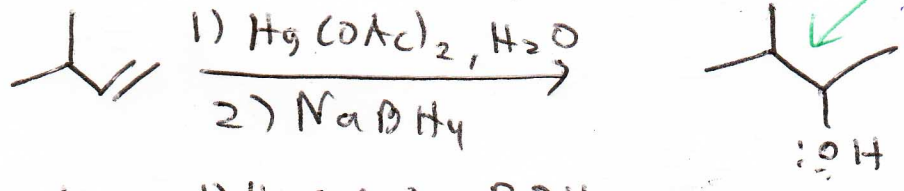 1) Hg(OAc)2, H2O
2) NaBH4
:OH